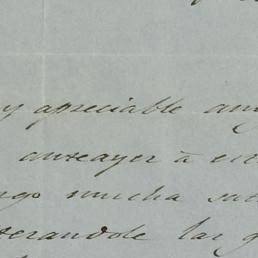 y apreciable am
anteayer à es
ngo mucha sa
terandole las g